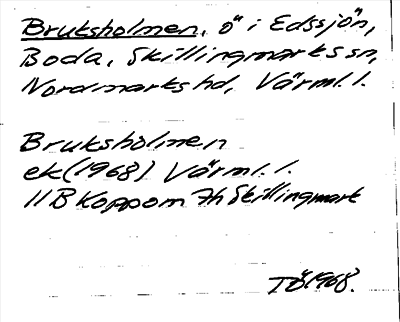 Bruksholmen, ö i Edssjön,
Boda, Skillingmarks sn,
Nordmarks hd, Värml. l.
Bruksholmen
ek (1968) Värml. l.
11B Koppom 7h Skillingmark
TÖ 1968.